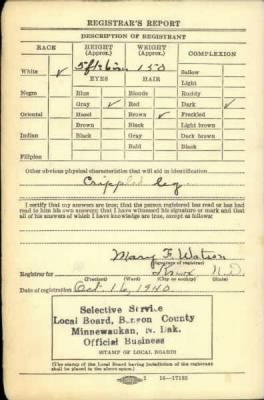 REGISTRAR'S REPORT
DESCRIPTION OF REGISTRANT
RACE HEIGHT (Approx.) WEIGHT (Approx.) COMPLEXION
White ✓ 5ft 6in 150 Sallow
EYES HAIR Light
Negro Blue Blonde Ruddy
Gray ✓ Red Dark ✓
Oriental Hazel Brown ✓ Freckled
Brown Black Light brown
Indian Black Gray Dark brown
Bald Black
Filipino
Other obvious physical characteristics that will aid in identification
Crippled leg
I certify that my answers are true; that the person registered has read or has had
read to him his own answers; that I have witnessed his signature or mark and that
all of his answers of which I have knowledge are true, except as follows:
Mary F. Watson
(Signature of registrar)
Registrar for Knox N.D.
(Precinct) (Ward) (City or county) (State)
Date of registration Oct. 16, 1940.
Selective Service
Local Board, Benson County
Minnewaukan, N. Dak.
Official Business
STAMP OF LOCAL BOARD
(The stamp of the Local Board having jurisdiction of the registrant
shall be placed in the above space.)
16—17105